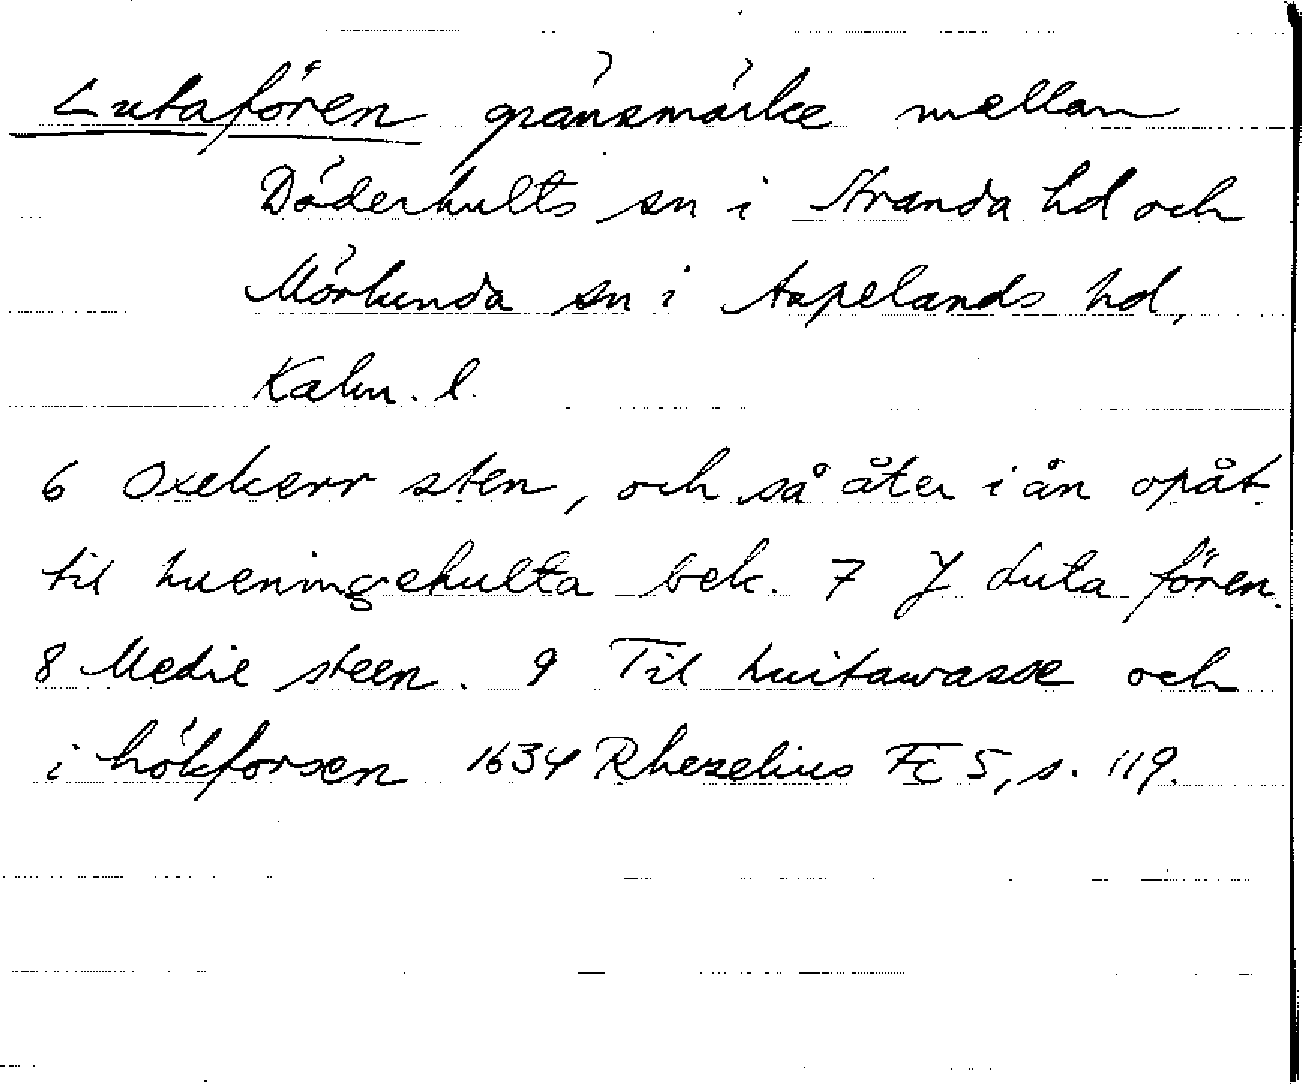 Lutafören gränsmärke mellan
Döderhults sn i Stranda hd och
Mörlunda sn i Aspelands hd,
Kalm. l.
6 Oxekerr sten, och så åter i ån opåt
til hueningehulta bek. 7 J Luta fören.
8 Medie steen. 9 Til huitawasse och
i hökforsen 1634 Rhezelius Fc 5, s. 119.